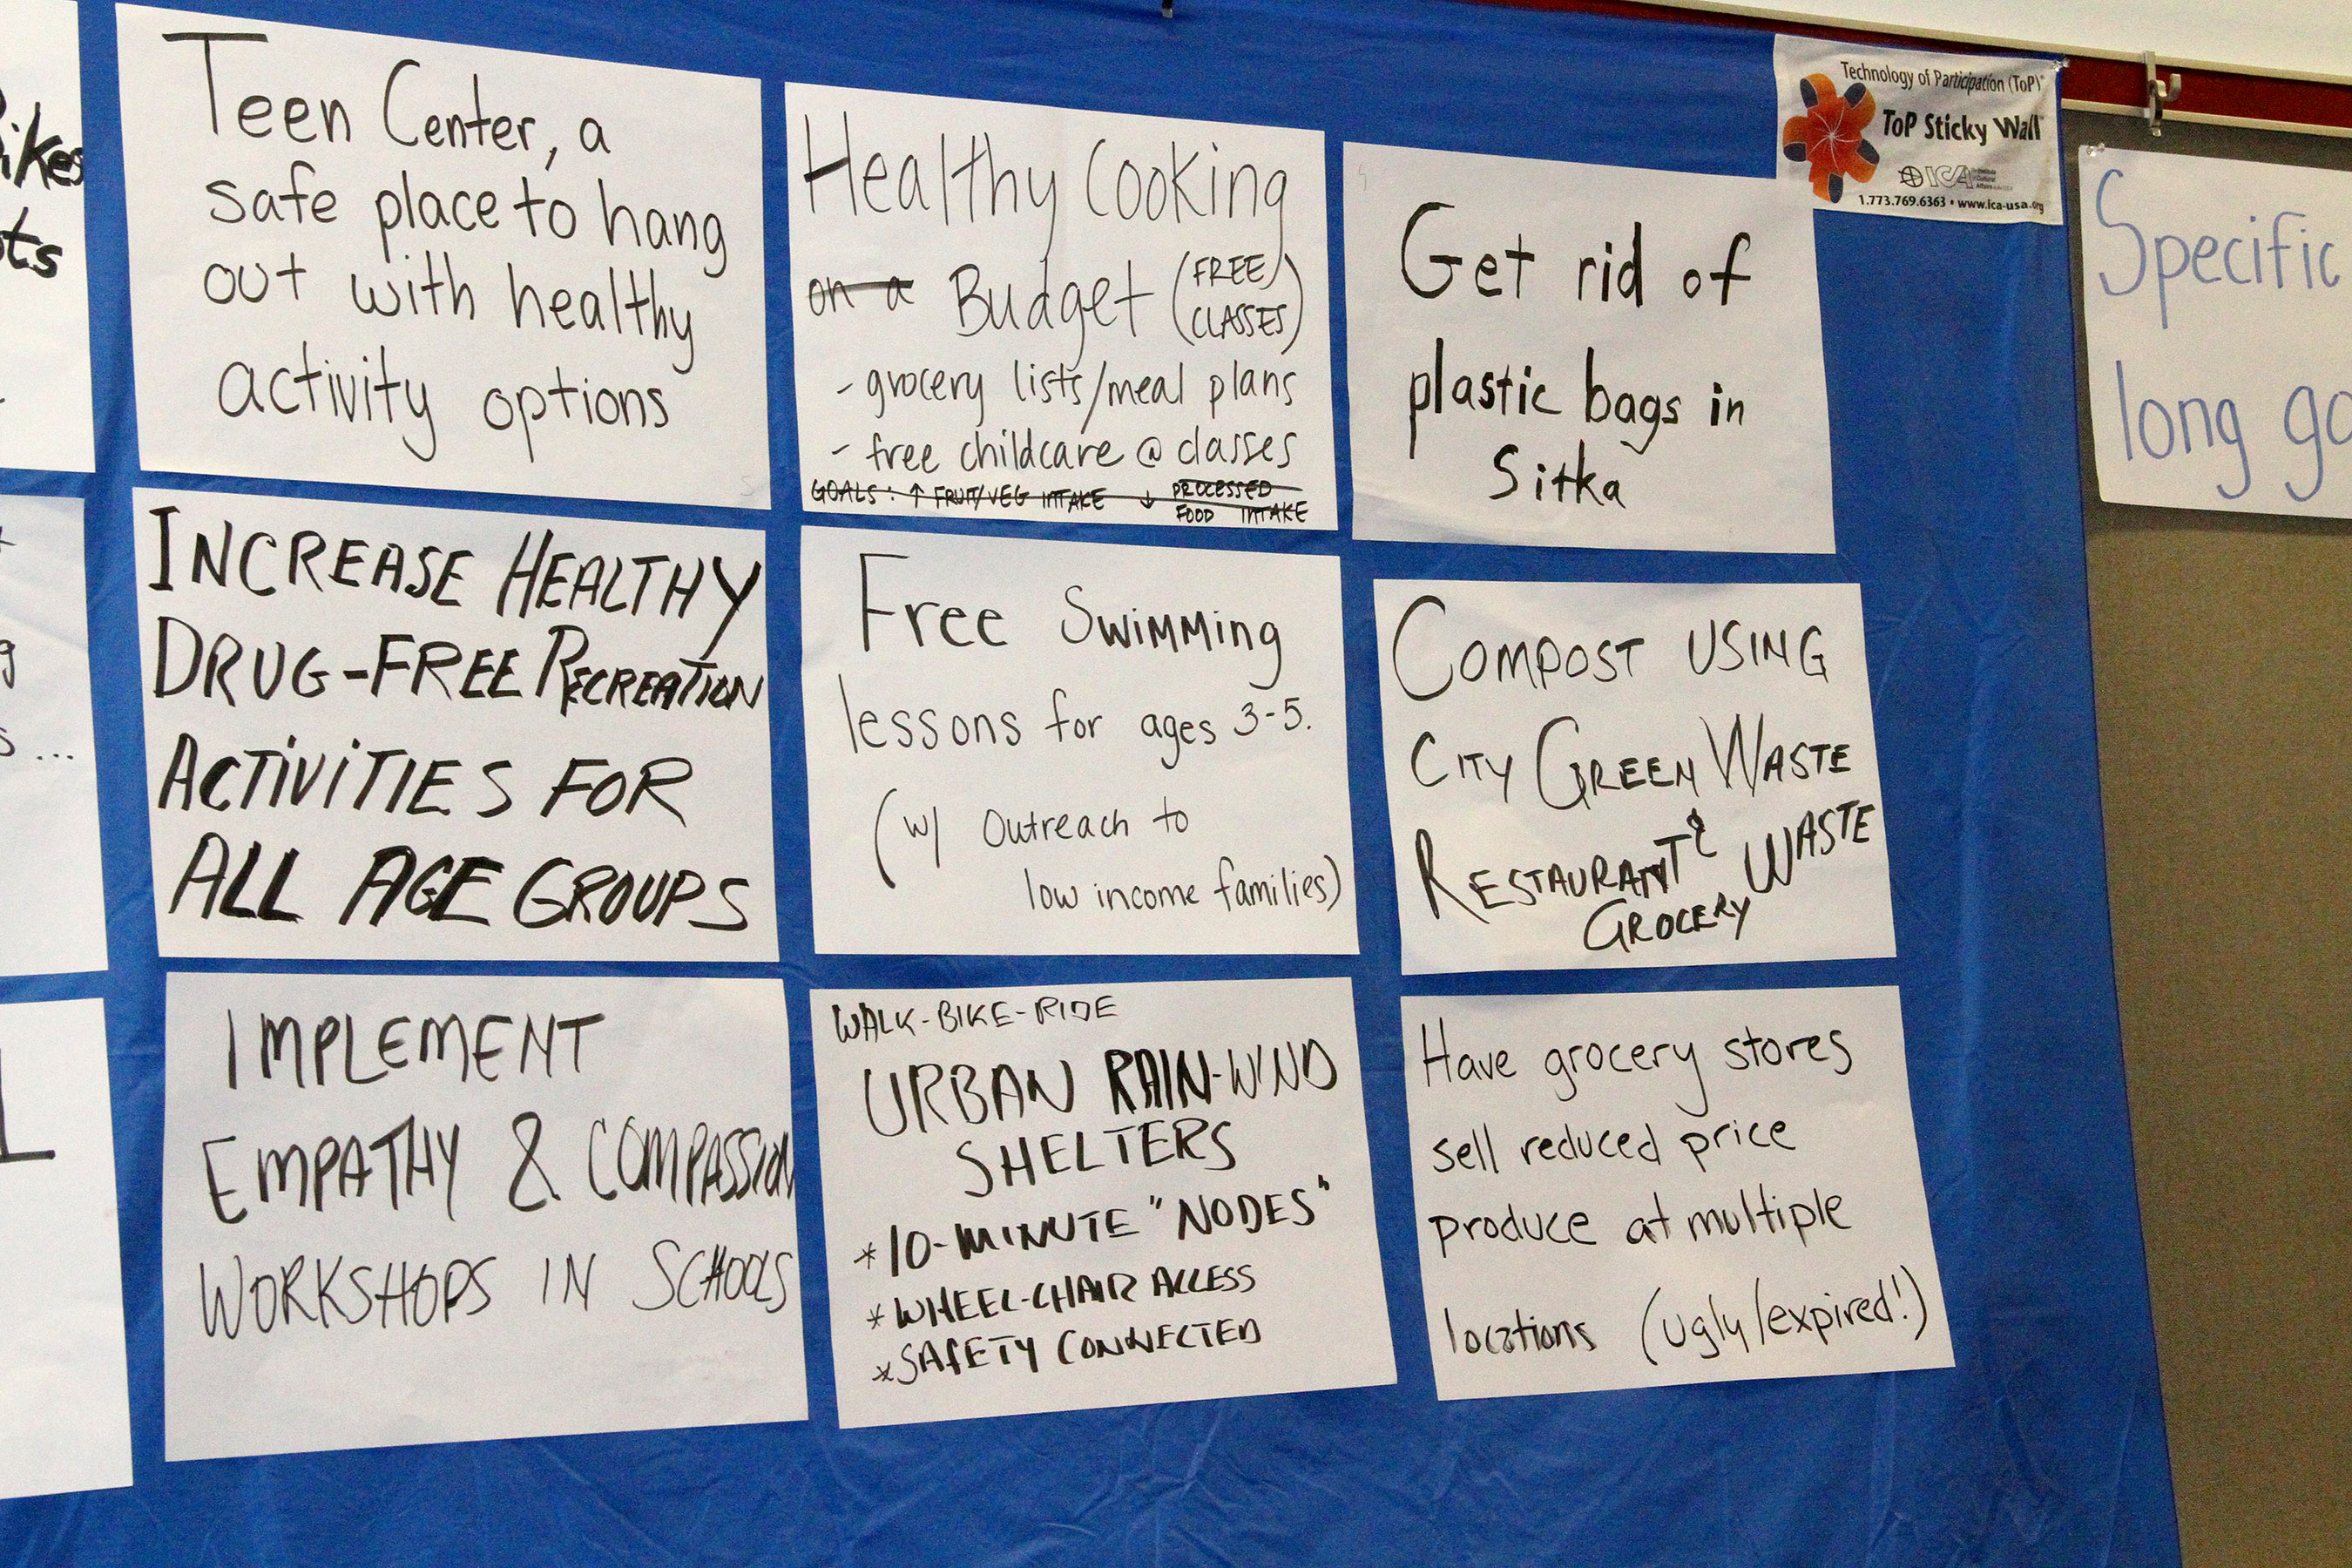 ikes
ts
Teen Center, a
safe place to hang
out with healthy
activity options
Healthy Cooking
on a Budget (FREE
CLASSES)
- grocery lists/meal plans
- free childcare @ classes
GOALS: ↑ FRUIT/VEG INTAKE ↓ PROCESSED
FOOD INTAKE
Get rid of
plastic bags in
Sitka
Technology of Participation (ToP)®
ToP Sticky Wall
ICA
1.773.769.6363 • www.ica-usa.org
Specific
long go
INCREASE HEALTHY
DRUG-FREE RECREATION
ACTiViTIES FOR
ALL AGE GROUPS
Free Swimming
lessons for ages 3-5.
(w/ Outreach to
low income families)
COMPOST USING
CITY GREEN WASTE
RESTAURANT & WASTE
GROCERY
IMPLEMENT
EMPATHY & COMPASSION
WORKSHOPS IN SCHOOLS
WALK-BIKE-RIDE
URBAN RAIN-WIND
SHELTERS
*10-MINUTE "NODES"
*WHEEL-CHAIR ACCESS
*SAFETY CONNECTED
Have grocery stores
sell reduced price
produce at multiple
locations (ugly/expired!)